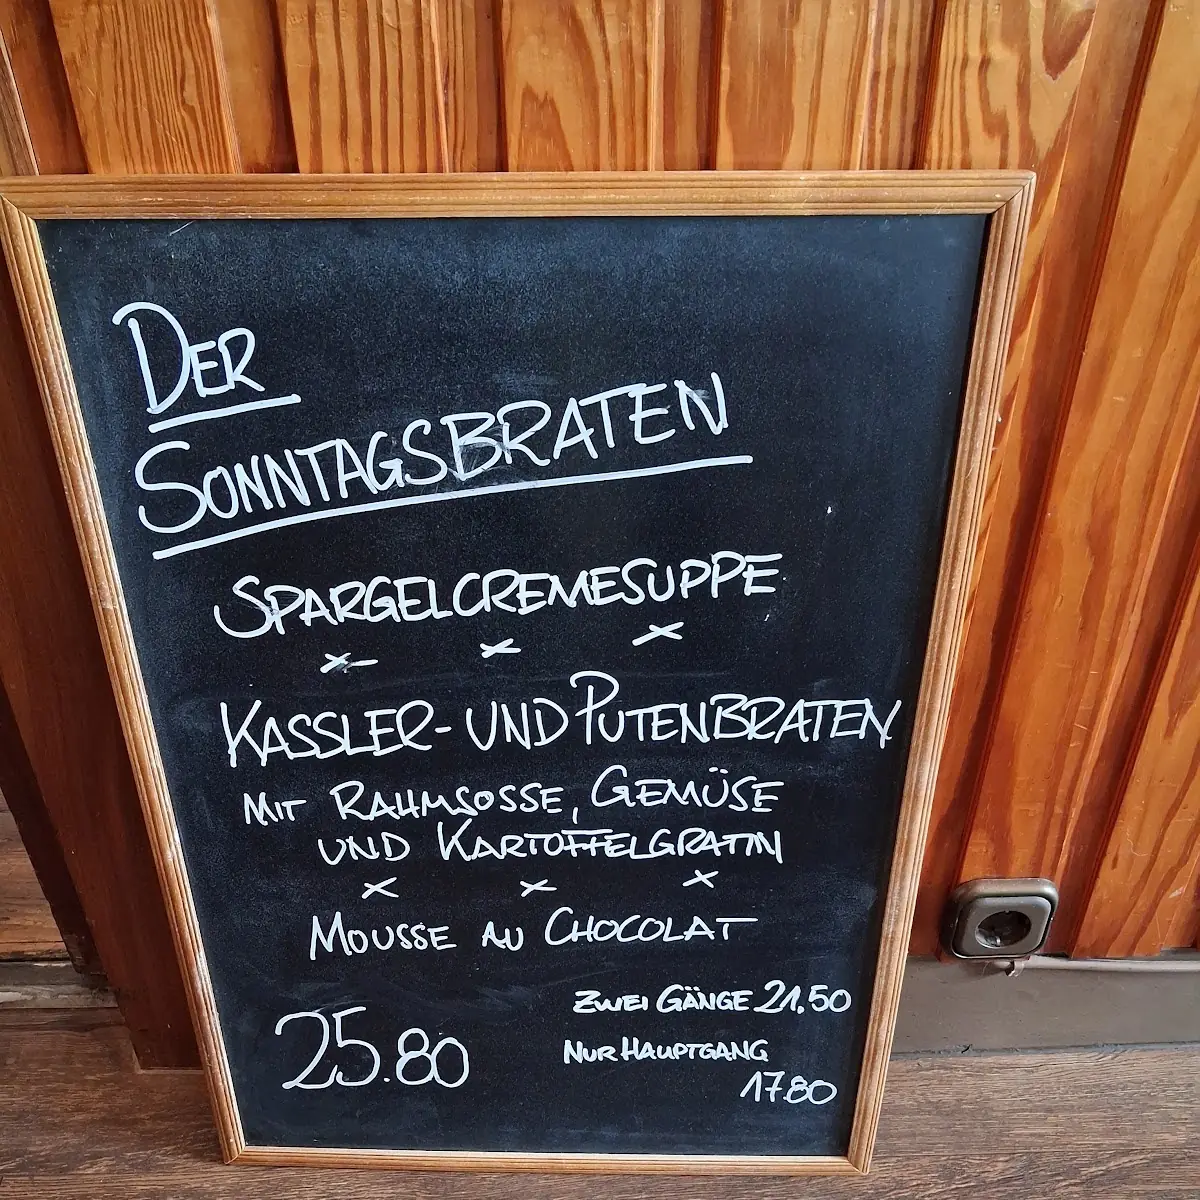 DER
SONNTAGSBRATEN
SPARGELCREMESUPPE
x x x
KASSLER- UND PUTENBRATEN
MIT RAHMSOSSE, GEMÜSE
UND KARTOFFELGRATIN
x x x
MOUSSE AU CHOCOLAT
ZWEI GÄNGE 21.50
25.80
NUR HAUPTGANG
17.80